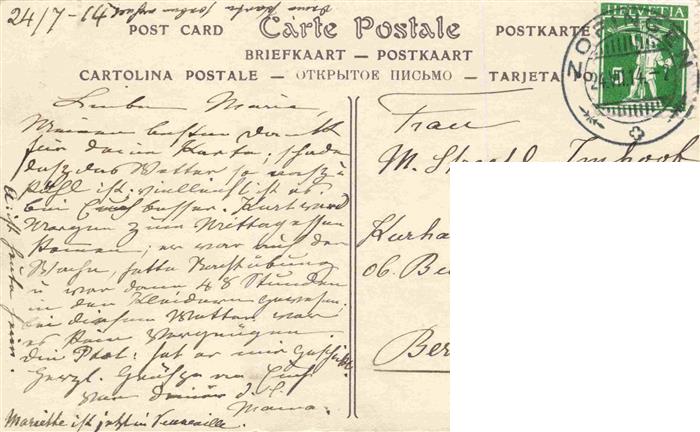 24/7-14
POST CARD
Carte Postale
POSTKARTE
BRIEFKAART — POSTKAART
CARTOLINA POSTALE — ОТКРЫТОЕ ПИСЬМО — TARJETA PO
HELVETIA
5
ZOFINGEN
24.VII.14.-7
Liebe Marie,
Meinen besten Dank
für deine Karte; schade
dass das Wetter so
kühl ist. vielleicht ist es
bei Euch besser. Kurt
Morgen zum Mittagessen
kommen; er war auf der
Wache, hatte Nachtübung
u war dann 48 Stunden
in den Kleidern gewesen,
bei diesem Wetter war
es kein Vergnügen
die hat er mir geschickt
Herzl. Grüsse an Euch
von deiner d. l.
Mama.
Mariette ist jetzt in
Frau
M. Imhoof
Kurha
ob. Be
Ber